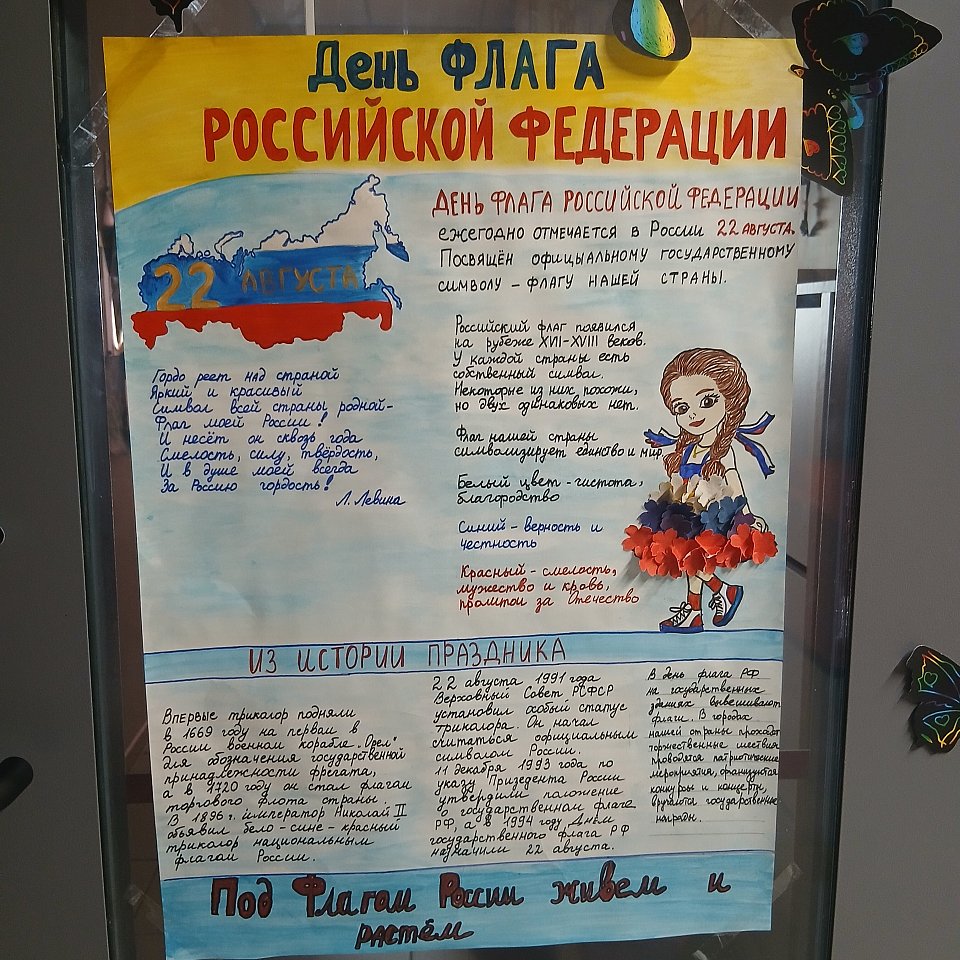 День ФЛАГА
РОССИЙСКОЙ ФЕДЕРАЦИИ
22 АВГУСТА
ДЕНЬ ФЛАГА РОССИЙСКОЙ ФЕДЕРАЦИИ
ЕЖЕГОДНО ОТМЕЧАЕТСЯ В РОССИИ 22 АВГУСТА.
ПОСВЯЩЁН ОФИЦЫАЛЬНОМУ ГОСУДАРСТВЕННОМУ
СИМВОЛУ – ФЛАГУ НАШЕЙ СТРАНЫ.
Гордо реет над страной
Яркий и красивый
Символ всей страны родной-
Флаг моей России!
И несёт он сквозь года
Смелость, силу, твёрдость,
И в душе моей всегда
За Россию гордость!
Л. Левина
Российский флаг появился
на рубеже XVII-XVIII веков.
У каждой страны есть
собственный символ.
Некоторые из них похожи,
но двух одинаковых нет.
Флаг нашей страны
символизирует единство и мир.
Белый цвет - чистота,
благородство
Синий - верность и
честность
Красный - смелость,
мужество и кровь,
пролитой за Отечество
ИЗ ИСТОРИИ ПРАЗДНИКА
Впервые триколор подняли
в 1669 году на первом в
России военном корабле „Орел"
для обозначения государственной
принадлежности фрегата,
а в 1720 году он стал флагом
торгового флота страны.
В 1896 г. император Николай II
объявил бело-сине-красный
триколор национальным
флагом России.
22 августа 1991 года
Верховный Совет РСФСР
установил особый статус
триколора. Он начал
считаться официальным
символом России.
11 декабря 1993 года по
указу Призедента России
утвердили положение
о государственном флаге
РФ, а в 1994 году Днём
государственного флага РФ
назначили 22 августа.
В день флага РФ
на государственных
зданиях вывешивают
флаги. В городах
нашей страны проходят
торжественные шествия,
проводятся патриотические
мероприятия,
конкурсы и концерты,
вручаются государственные
награды.
Под Флагом России живем и
растём